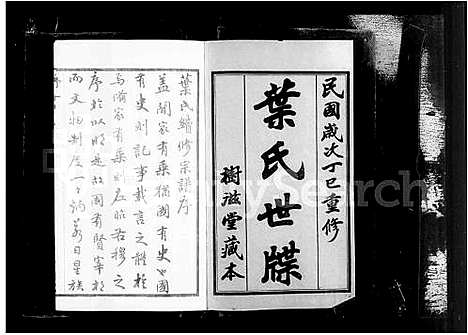 民國歲次丁巳重修
葉氏世牒
樹滋堂藏本
葉氏續修宗譜序
蓋聞家有乘猶國有史也國
有史則記事載言之體於
焉備家有乘則左昭右穆之
序於以明是故國有賢宰相
而文物制度一一炳若日星族